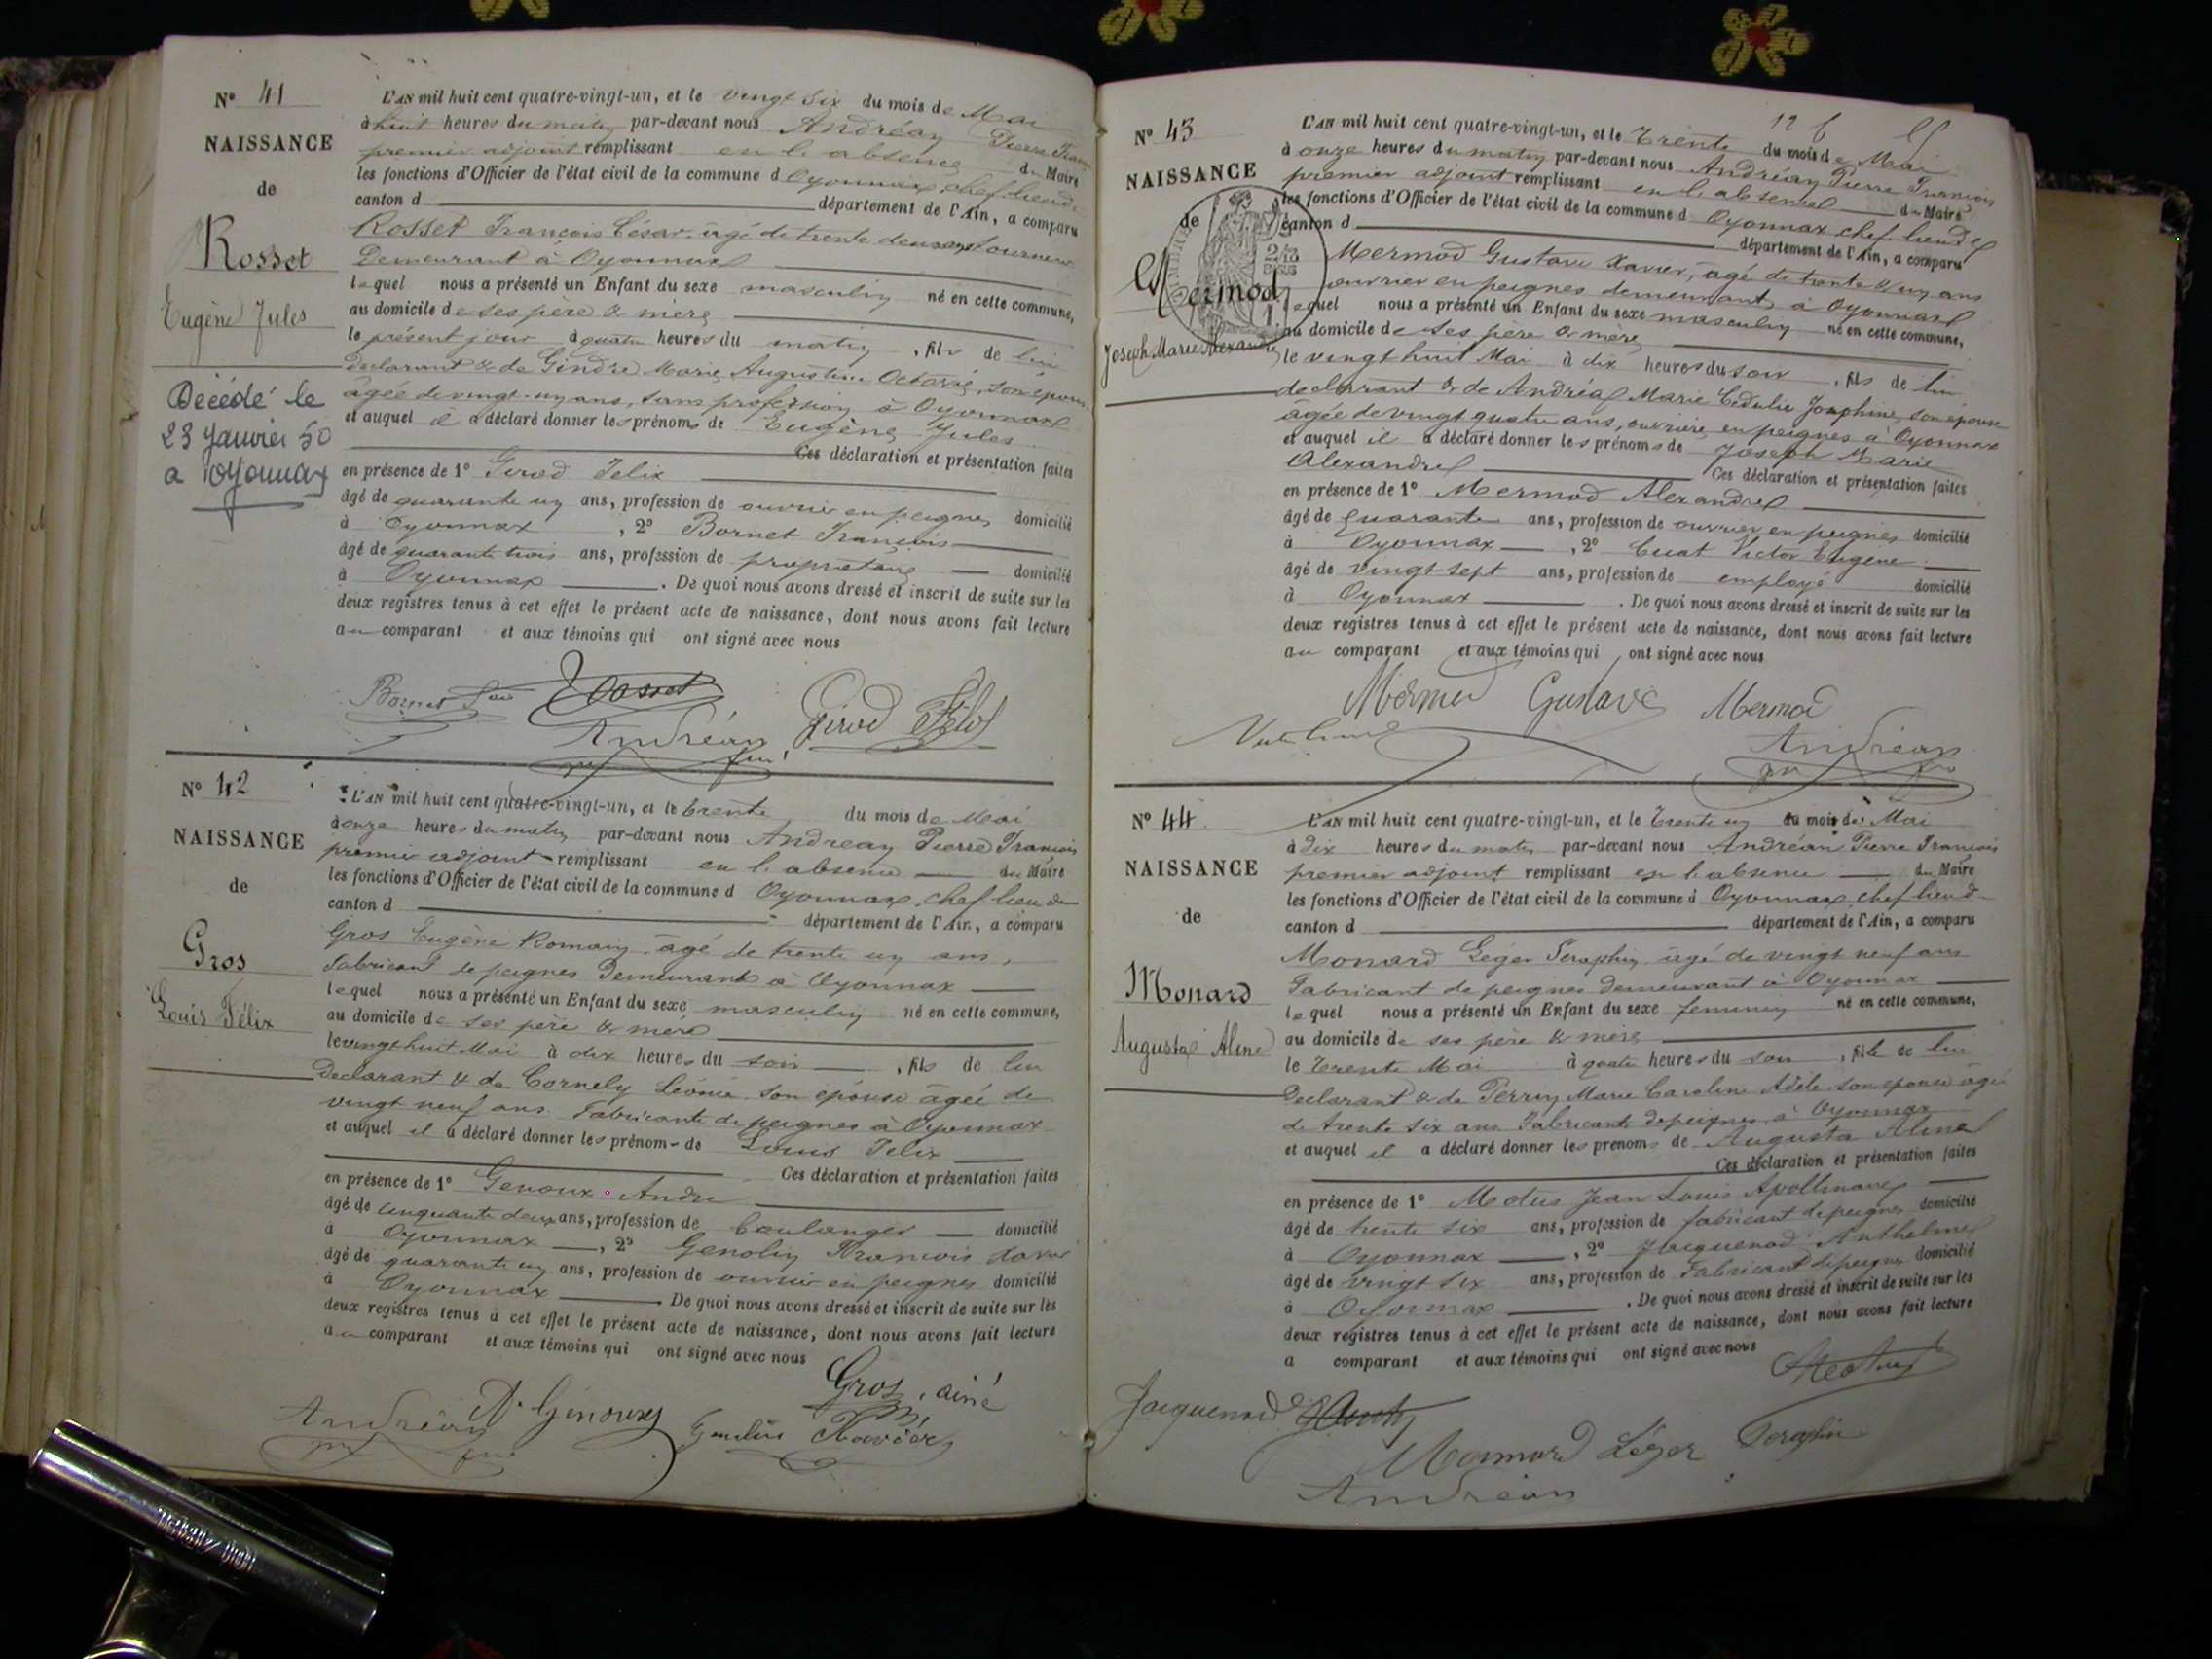 N° 41
NAISSANCE
de
Rosset
Eugène Jules
Décédé le
23 Janvier 50
a Oyonnax
L'AN mil huit cent quatre-vingt-un, et le vingt six du mois de Mai
à huit heures du matin par-devant nous Andréan Pierre
premier adjoint remplissant en l'absence du Maire
les fonctions d'Officier de l'état civil de la commune d'Oyonnax chef lieu de
canton d département de l'Ain, a comparu
Rosset François César âgé de trente deux ans tourneur
Demeurant à Oyonnax
lequel nous a présenté un Enfant du sexe masculin né en cette commune,
au domicile de ses père & mère
le présent jour à quatre heures du matin, fils de lui
Déclarant & de Gindre Marie Augustine Octavie, son épouse
âgée de vingt-un ans, sans profession à Oyonnax
et auquel il a déclaré donner les prénoms de Eugène Jules
Ces déclaration et présentation faites
en présence de 1° Girod Félix
âgé de quarante un ans, profession de ouvrier en peignes domicilié
à Oyonnax, 2° Bornet François
âgé de quarante trois ans, profession de propriétaire domicilié
à Oyonnax. De quoi nous avons dressé et inscrit de suite sur les
deux registres tenus à cet effet le présent acte de naissance, dont nous avons fait lecture
au comparant et aux témoins qui ont signé avec nous
Bornet Rosset Girod Félix
Andréan
N° 42
NAISSANCE
de
Gros
Louis Félix
L'AN mil huit cent quatre-vingt-un, et le trente du mois de Mai
à onze heures du matin par-devant nous Andréan Pierre François
premier adjoint remplissant en l'absence du Maire
les fonctions d'Officier de l'état civil de la commune d Oyonnax, chef lieu de
canton d département de l'Ain, a comparu
Gros Eugène Romain âgé de trente un ans,
Fabricant de peignes Demeurant à Oyonnax
lequel nous a présenté un Enfant du sexe masculin né en cette commune,
au domicile de ses père & mère
le vingt huit Mai à dix heures du soir, fils de lui
Déclarant & de Cornely Léonie son épouse âgée de
vingt neuf ans Fabricante de peignes à Oyonnax
et auquel il a déclaré donner les prénoms de Louis Félix
Ces déclaration et présentation faites
en présence de 1° Genoux André
âgé de cinquante deux ans, profession de boulanger domicilié
à Oyonnax, 2° Genolin François Xavier
âgé de quarante un ans, profession de ouvrier en peignes domicilié
à Oyonnax De quoi nous avons dressé et inscrit de suite sur les
deux registres tenus à cet effet le présent acte de naissance, dont nous avons fait lecture
au comparant et aux témoins qui ont signé avec nous
Gros, ainé
Andréan A. Genoux Genolin Xavier
12 f
N° 43
NAISSANCE
de
Mermod
Joseph Marie Alexandre
L'AN mil huit cent quatre-vingt-un, et le Trente du mois de Mai
à onze heures du matin par-devant nous Andréan Pierre François
premier adjoint remplissant en l'absence du Maire
les fonctions d'Officier de l'état civil de la commune d Oyonnax chef lieu de
canton d département de l'Ain, a comparu
Mermod Gustave Xavier, âgé de trente & un ans
ouvrier en peignes demeurant à Oyonnax
lequel nous a présenté un Enfant du sexe masculin né en cette commune,
au domicile de ses père & mère
le vingt huit Mai à dix heures du soir, fils de lui
déclarant & de Andréa Marie Joséphine, son épouse
âgée de vingt quatre ans, ouvrière en peignes à Oyonnax
et auquel il a déclaré donner les prénoms de Joseph Marie
Alexandre Ces déclaration et présentation faites
en présence de 1° Mermod Alexandre
âgé de quarante ans, profession de ouvrier en peignes domicilié
à Oyonnax, 2° Cuat Victor Eugène
âgé de vingt sept ans, profession de employé domicilié
à Oyonnax. De quoi nous avons dressé et inscrit de suite sur les
deux registres tenus à cet effet le présent acte de naissance, dont nous avons fait lecture
au comparant et aux témoins qui ont signé avec nous
Mermod Gustave Mermod
Andréan
N° 44
NAISSANCE
de
Monard
Augusta Aline
L'AN mil huit cent quatre-vingt-un, et le Trente un du mois de Mai
à dix heures du matin par-devant nous Andréan Pierre François
premier adjoint remplissant en l'absence du Maire
les fonctions d'Officier de l'état civil de la commune d Oyonnax chef lieu de
canton d département de l'Ain, a comparu
Monard Léger Séraphin âgé de vingt neuf ans
Fabricant de peignes demeurant à Oyonnax
lequel nous a présenté un Enfant du sexe feminin né en cette commune,
au domicile de ses père & mère
le Trente Mai à quatre heures du soir, fille de lui
Déclarant & de Perrin Marie Caroline Adèle son épouse âgée
de trente six ans Fabricante de peignes à Oyonnax
et auquel il a déclaré donner les prenoms de Augusta Aline
Ces déclaration et présentation faites
en présence de 1° Modus Jean Louis Apollinaire
âgé de trente six ans, profession de fabricant de peignes domicilié
à Oyonnax, 2° Jacquenod Anthelme
âgé de vingt six ans, profession de Fabricant de peignes domicilié
à Oyonnax. De quoi nous avons dressé et inscrit de suite sur les
deux registres tenus à cet effet le présent acte de naissance, dont nous avons fait lecture
a comparant et aux témoins qui ont signé avec nous
Jacquenod
Monard Léger Séraphin
Andréan